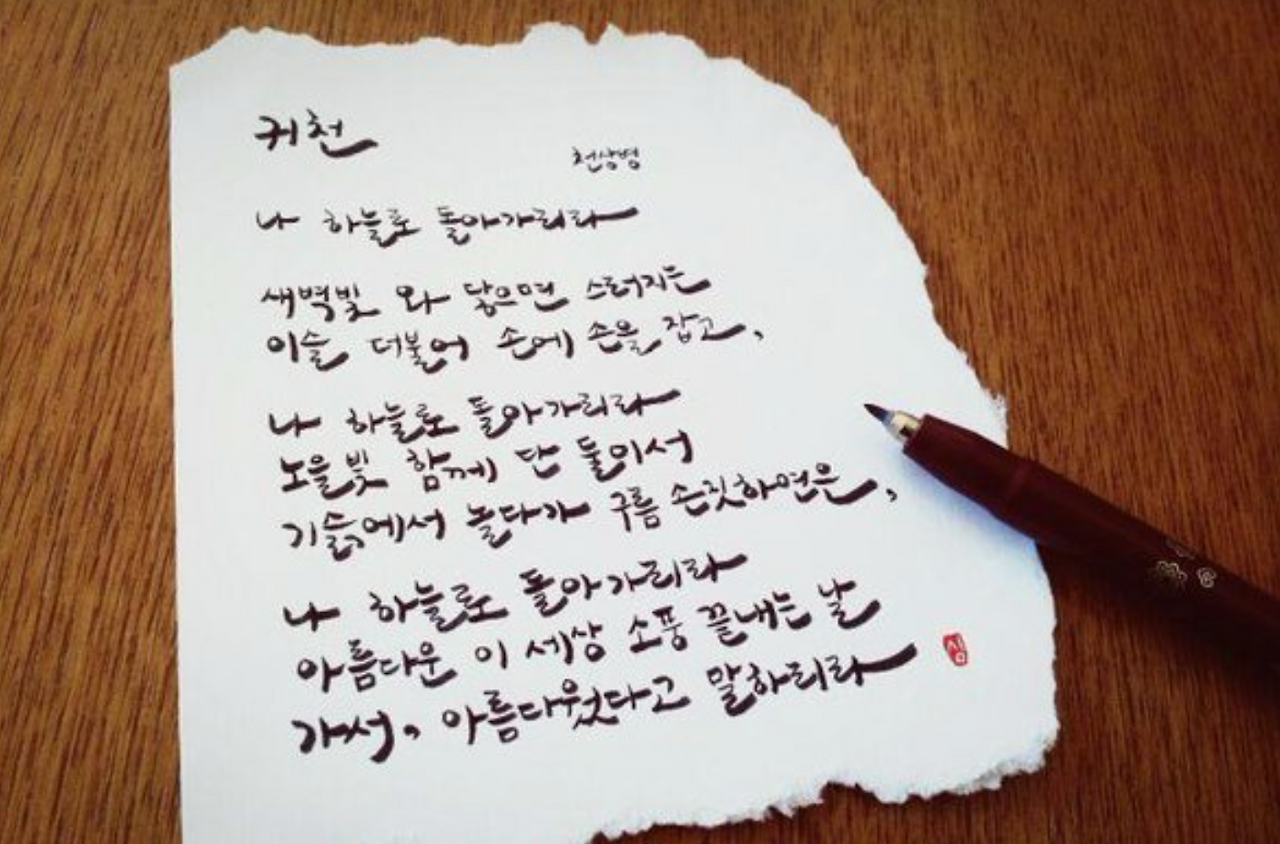 귀천
천상병
나 하늘로 돌아가리라
새벽빛 와 닿으면 스러지는
이슬 더불어 손에 손을 잡고,
나 하늘로 돌아가리라
노을빛 함께 단 둘이서
기슭에서 놀다가 구름 손짓하면은,
나 하늘로 돌아가리라
아름다운 이 세상 소풍 끝내는 날
가서, 아름다웠다고 말하리라
심